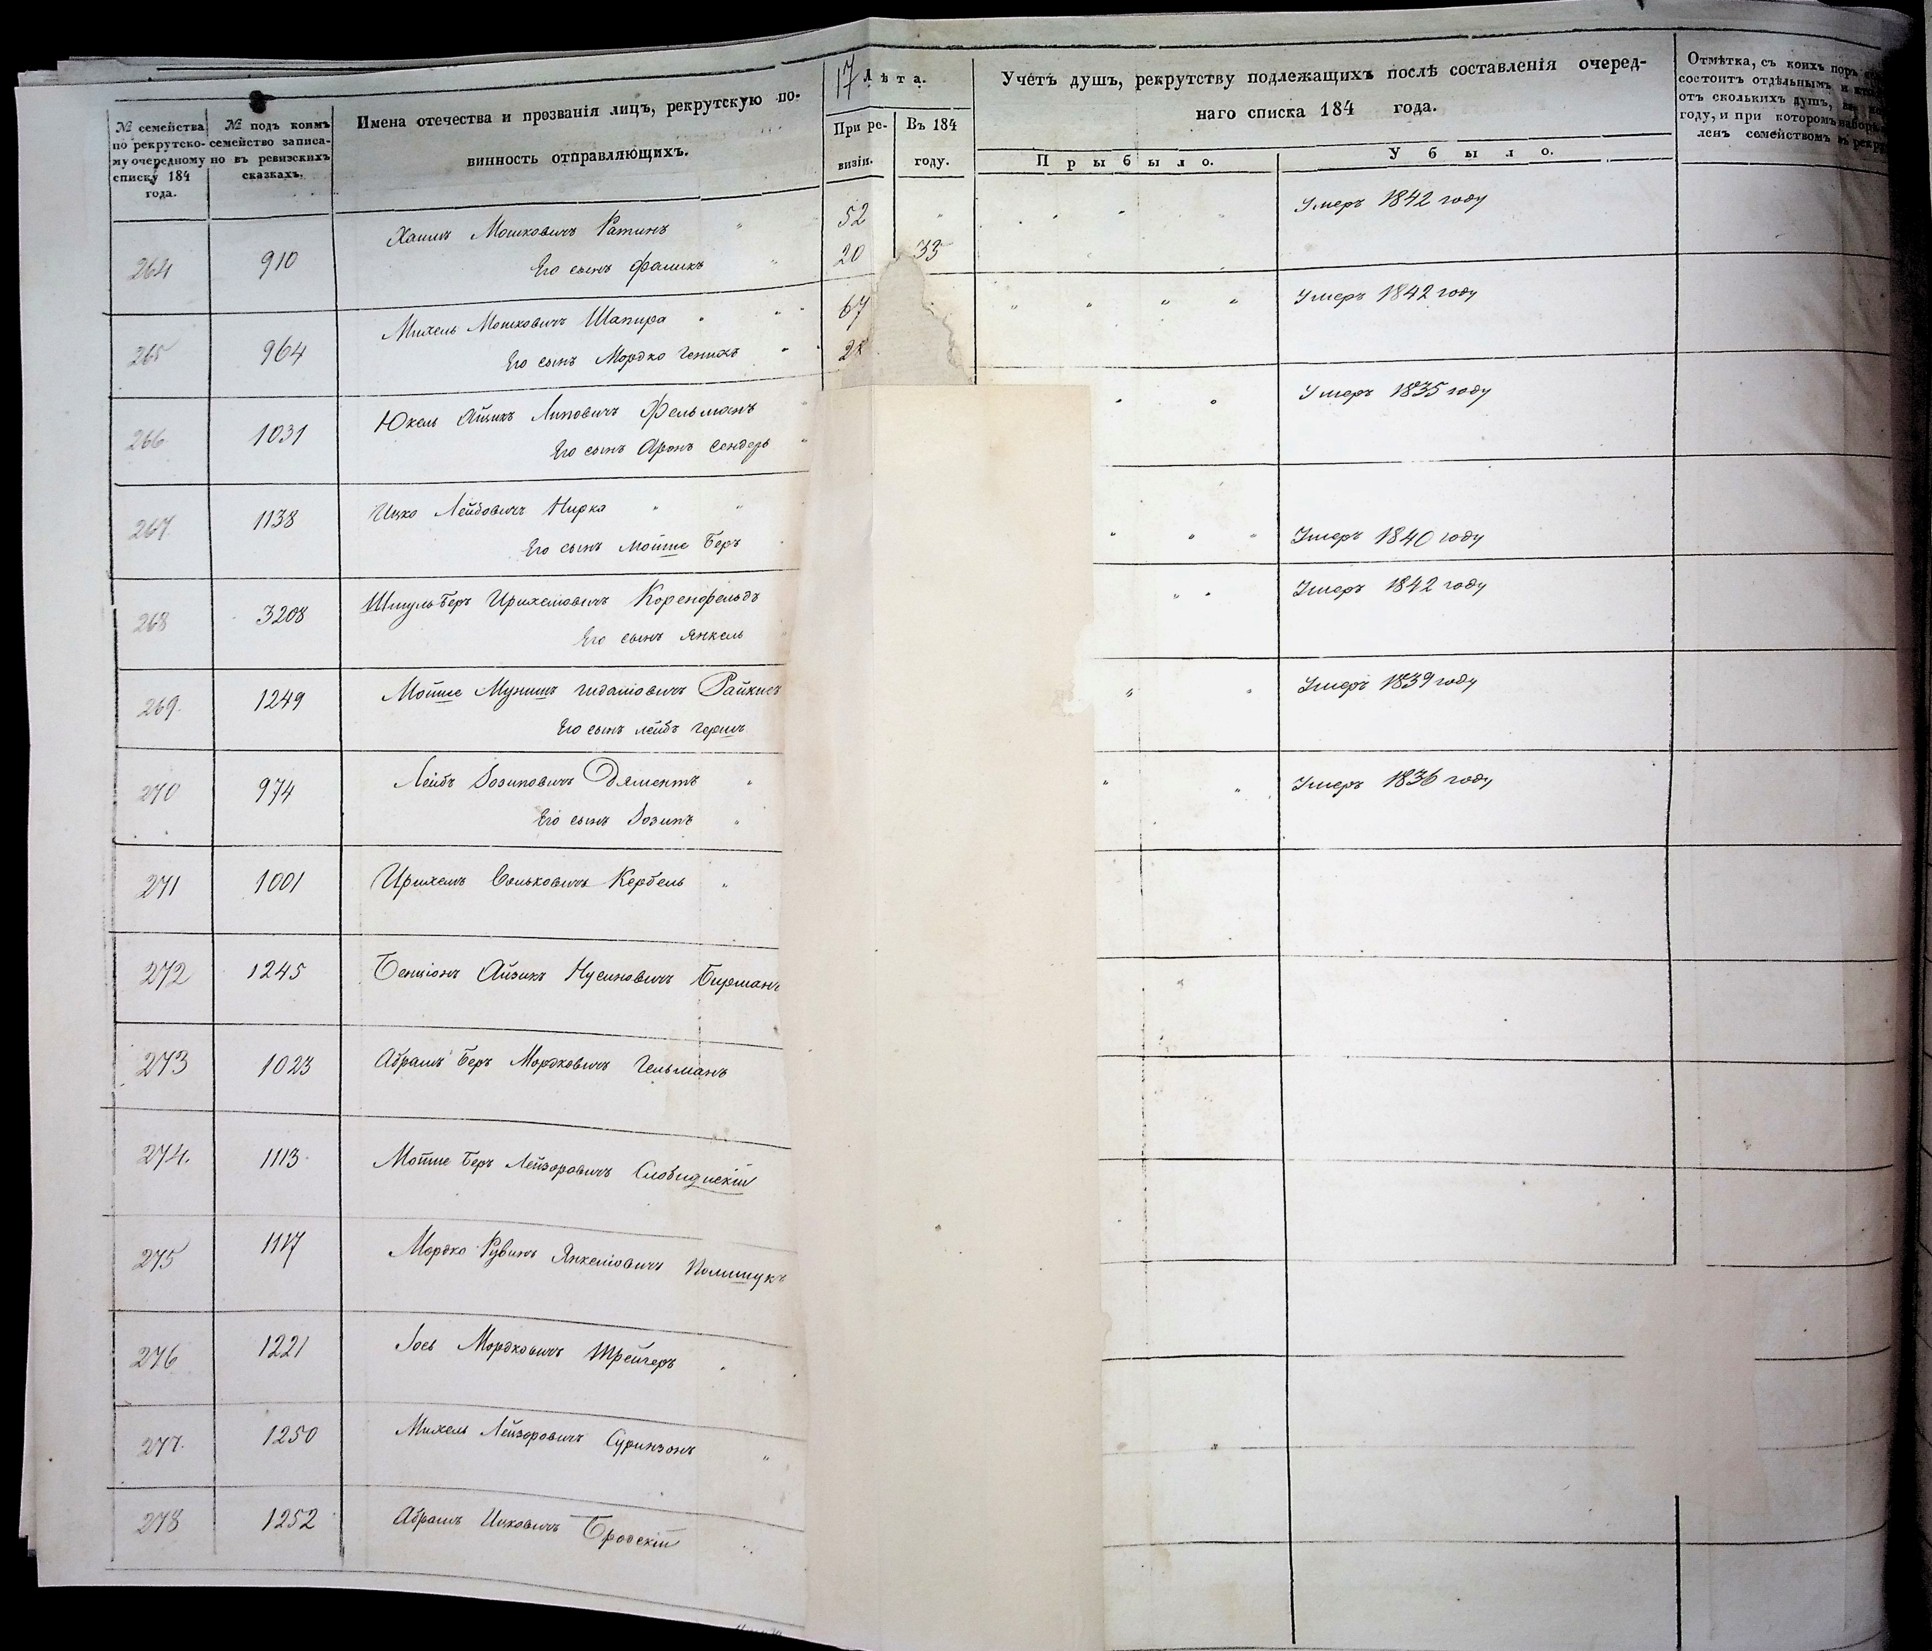 № семейства по рекрутскому очередному списку 184 года.
№ подъ коимъ семейство записано въ ревизскихъ сказкахъ.
Имена отечества и прозванія лицъ, рекрутскую по-
винность отправляющихъ.
17 Лѣта.
При ре-
визіи.
Въ 184
году.
Учетъ душъ, рекрутству подлежащихъ послѣ составленія очеред-
наго списка 184 года.
Прыбыло.
Убыло.
Отмѣтка, съ коихъ поръ
состоитъ отдѣльнымъ и
отъ сколькихъ душъ, въ
году, и при которомъ наборѣ
ленъ семействомъ въ рекру
264 910 Хаимъ Мошковичъ Ратинъ 52 Умеръ 1842 году
Его сынъ Фаликъ 20 33
265 964 Михель Мошковичъ Шапира 67 Умеръ 1842 году
Его сынъ Мордко Генихъ
266 1031 Юкель Айзикъ Липовичъ Фельманъ Умеръ 1835 году
Его сынъ Аронъ Сендеръ
267 1138 Ицко Лейбовичъ Нирка
Его сынъ Мойше Беръ Умеръ 1840 году
268 3208 Шмуль Беръ Ирихемовичъ Коренфельдъ Умеръ 1842 году
Его сынъ Янкель
269. 1249 Мойше Мунишъ Гидаліовичъ Умеръ 1839 году
Его сынъ Лейбъ Гершъ
270 974 Лейбъ Іозиповичъ Дяментъ Умеръ 1836 году
Его сынъ Іозипъ
271 1001 Ирихемъ Кербель
272 1245 Бенціонъ Айзикъ Нусиновичъ Бирманъ
273 1023 Абрамъ Беръ Мордковичъ Гельманъ
274. 1113 Мойше Беръ Лейзоровичъ
275 1117 Мордко Рувинъ Янкеліовичъ Полишукъ
276 1221 Іось Мордковичъ Трейгеръ
277. 1250 Михель Лейзоровичъ Суринзонъ
278 1252 Абрамъ Ицковичъ Бродскій